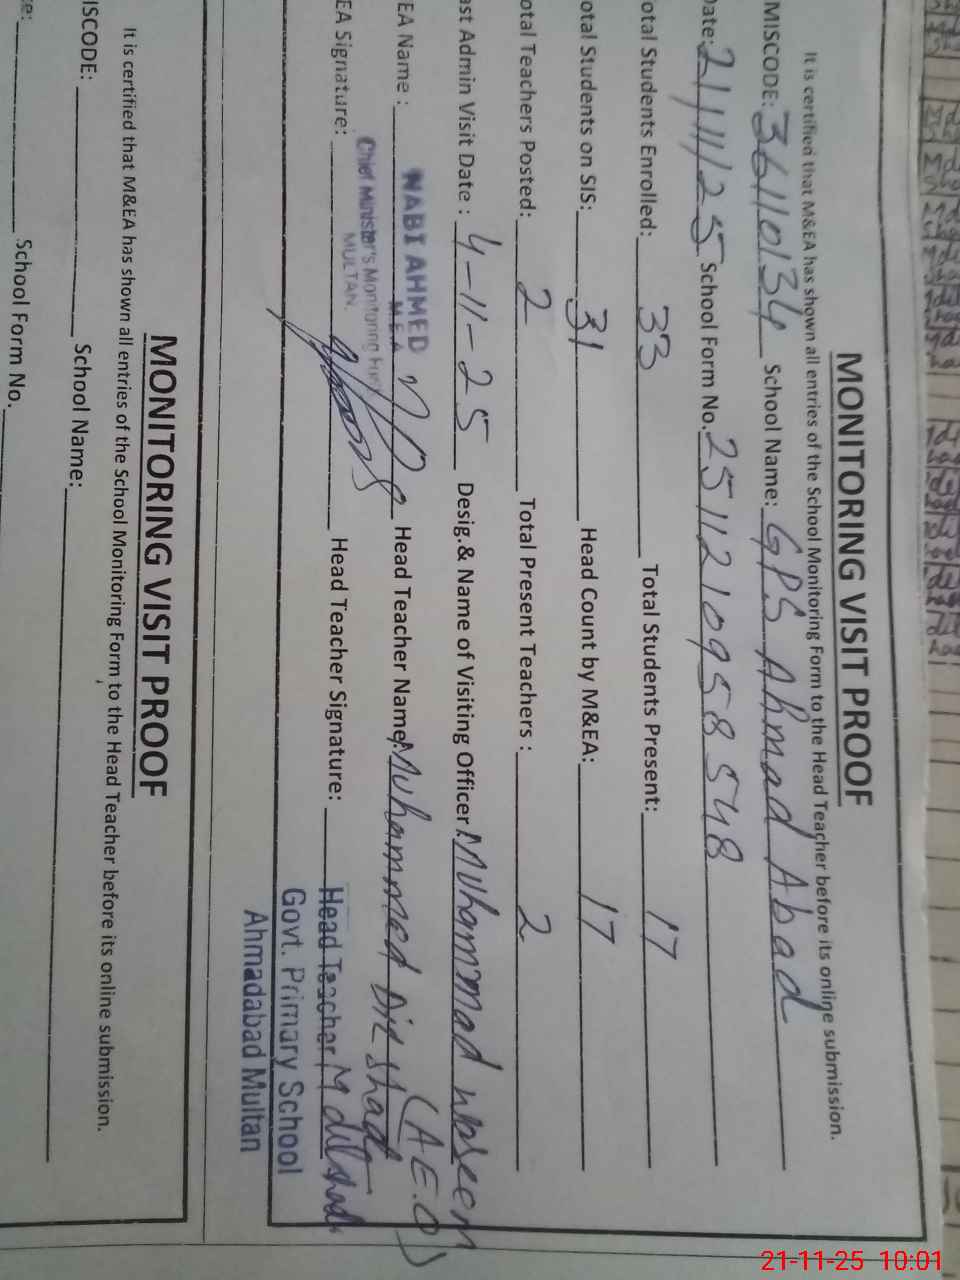 MONITORING VISIT PROOF
It is certified that M&EA has shown all entries of the School Monitoring Form to the Head Teacher before its online submission.
MISCODE: 36110134 School Name: GPS Ahmad Abad
Date: 21/11/25 School Form No. 2511210958548
otal Students Enrolled: 33 Total Students Present: 17
otal Students on SIS: 31 Head Count by M&EA: 17
otal Teachers Posted: 2 Total Present Teachers : 2
ast Admin Visit Date : 4-11-25 Desig.& Name of Visiting Officer: Muhammad (A.E.O)
EA Name : NABI AHMED Head Teacher Name: Muhammed Dilshad
M.E.A
EA Signature: Head Teacher Signature: M dilshad
Chief Minister's Monitoring
MULTAN.
Head Teacher
Govt. Primary School
Ahmadabad Multan
MONITORING VISIT PROOF
It is certified that M&EA has shown all entries of the School Monitoring Form to the Head Teacher before its online submission.
ISCODE: School Name:
te: School Form No.
21-11-25 10:01